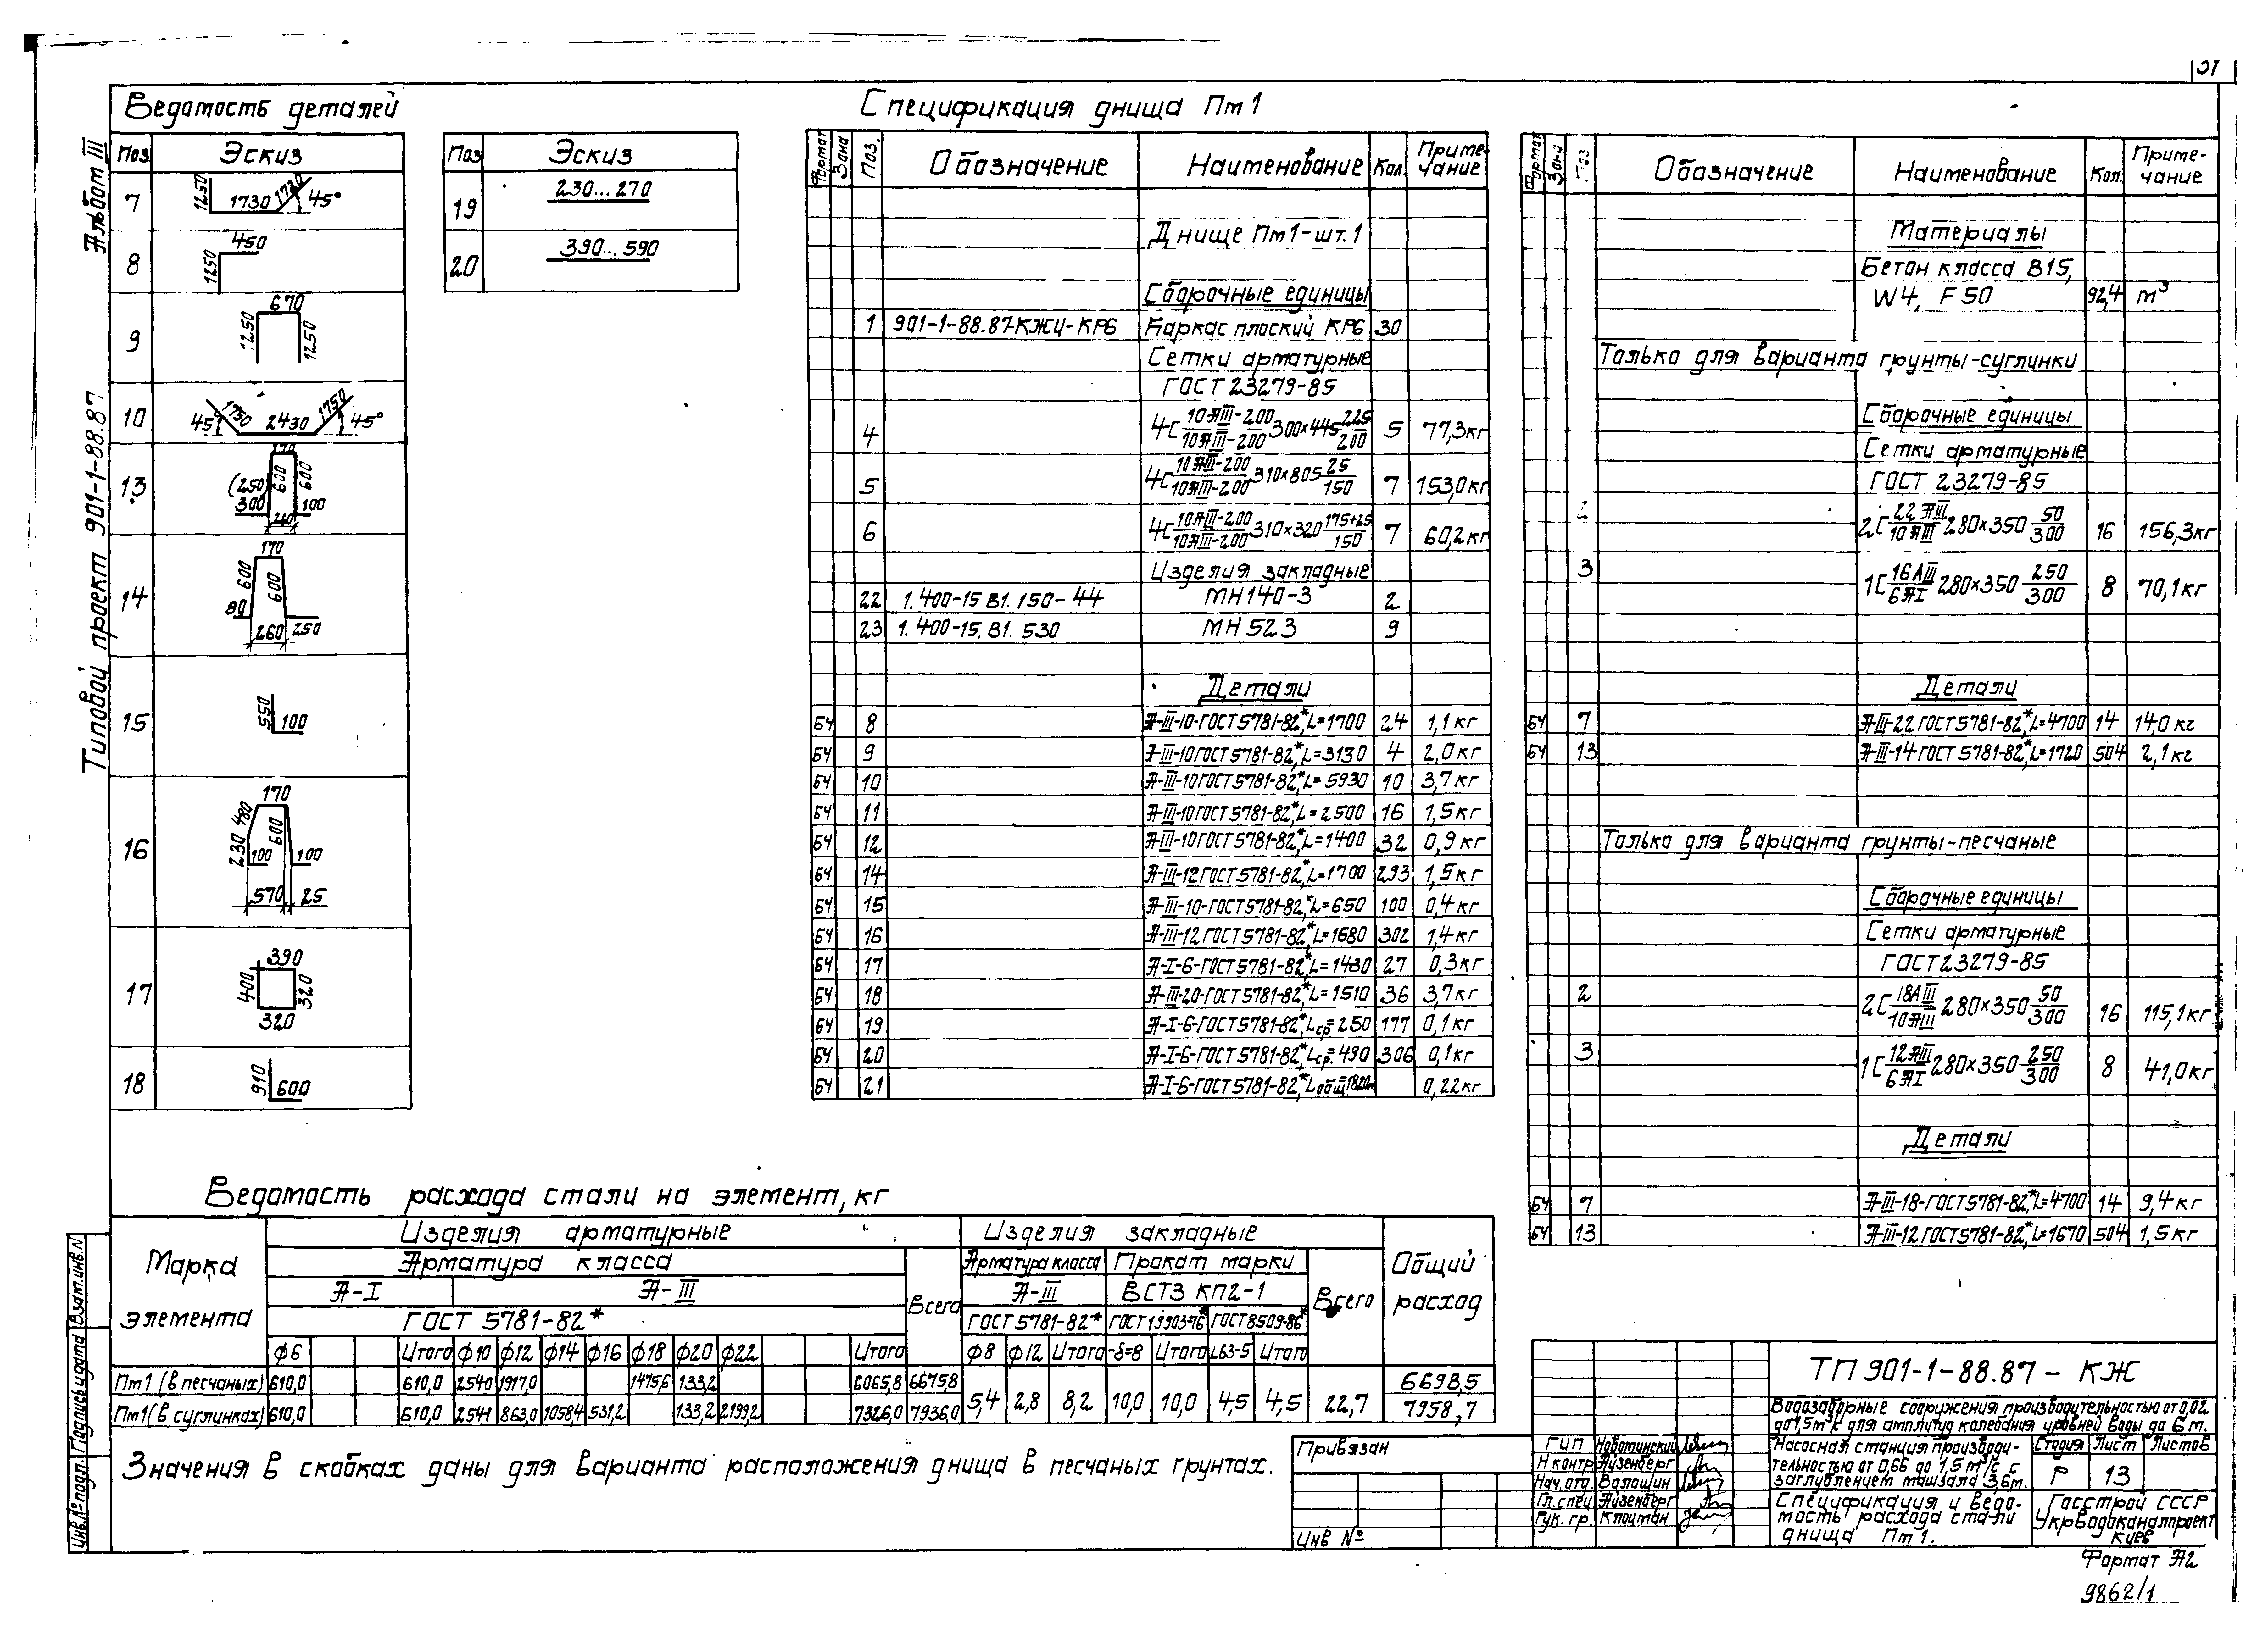 Альбом III
Типовой проект 901-1-88.87
Ведомость деталей
Поз. Эскиз
7 1250 1730 1720 45°
8 450 1250
9 670 1250 1250
10 45° 1750 2430 1750 45°
13 170 (250) 300 600 600 100 260
14 170 600 600 80 260 250
15 550 100
16 170 480 230 600 100 100 570 25
17 390 400 320 320
18 910 600
Поз Эскиз
19 230...270
20 390...590
Спецификация днища Пм1
Формат Зона Поз. Обозначение Наименование Кол. Примечание
Днище Пм1-шт.1
Сборочные единицы
1 901-1-88.87-КЖИ-КР6 Каркас плоский КР6 30
Сетки арматурные
ГОСТ 23279-85
4 4С 10АIII-200/10АIII-200 300×445 225/200 5 77,3кг
5 4С 10АIII-200/10АIII-200 310×805 25/150 7 153,0кг
6 4С 10АIII-200/10АIII-200 310×320 175+25/150 7 60,2кг
Изделия закладные
22 1.400-15 В1.150-44 МН140-3 2
23 1.400-15.В1.530 МН523 9
Детали
БЧ 8 А-III-10-ГОСТ5781-82*, L=1700 24 1,1кг
БЧ 9 А-III-10ГОСТ5781-82*, L=3130 4 2,0кг
БЧ 10 А-III-10ГОСТ5781-82*, L=5930 10 3,7кг
БЧ 11 А-III-10ГОСТ5781-82*, L=2500 16 1,5кг
БЧ 12 А-III-10ГОСТ5781-82*, L=1400 32 0,9кг
БЧ 14 А-III-12ГОСТ5781-82*, L=1700 293 1,5кг
БЧ 15 А-III-10-ГОСТ5781-82*, L=650 100 0,4кг
БЧ 16 А-III-12ГОСТ5781-82*, L=1680 302 1,4кг
БЧ 17 А-I-6-ГОСТ5781-82*, L=1430 27 0,3кг
БЧ 18 А-III-20-ГОСТ5781-82*, L=1510 36 3,7кг
БЧ 19 А-I-6-ГОСТ5781-82*, Lср=250 177 0,1кг
БЧ 20 А-I-6-ГОСТ5781-82*, Lср.=490 306 0,1кг
БЧ 21 А-I-6-ГОСТ5781-82*, Lобщ=1820м 0,22кг
Формат Зона Поз Обозначение Наименование Кол. Примечание
Материалы
Бетон класса В15,
W4, F50 92,4 м³
Только для варианта грунты-суглинки
Сборочные единицы
Сетки арматурные
ГОСТ 23279-85
2 2С 22АIII/10АIII 280×350 50/300 16 156,3кг
3 1С 16АIII/6АI 280×350 250/300 8 70,1кг
Детали
БЧ 7 А-III-22 ГОСТ5781-82*, L=4700 14 14,0кг
БЧ 13 А-III-14 ГОСТ5781-82*, L=1720 504 2,1кг
Только для варианта грунты-песчаные
Сборочные единицы
Сетки арматурные
ГОСТ23279-85
2 2С 18АIII/10АIII 280×350 50/300 16 115,1кг
3 1С 12АIII/6АI 280×350 250/300 8 41,0кг
Детали
БЧ 7 А-III-18-ГОСТ5781-82*, L=4700 14 9,4кг
БЧ 13 А-III-12ГОСТ5781-82*, L=1670 504 1,5кг
Ведомость расхода стали на элемент, кг
Марка элемента Изделия арматурные Изделия закладные Общий расход
Арматура класса Всего Арматура класса Прокат марки Всего
А-I А-III А-III ВСТ3 КП2-1
ГОСТ 5781-82* ГОСТ5781-82* ГОСТ19903-76* ГОСТ8509-86*
ф6 Итого ф10 ф12 ф14 ф16 ф18 ф20 ф22 Итого ф8 ф12 Итого -δ=8 Итого L63-5 Итого
Пм1 (в песчаных) 610,0 610,0 2540 1917,0 1475,6 133,2 6065,8 6675,8 6698,5
Пм1 (в суглинках) 610,0 610,0 2541 863,0 1058,4 531,2 133,2 2199,2 7326,0 7936,0 7958,7
5,4 2,8 8,2 10,0 10,0 4,5 4,5 22,7
Значения в скобках даны для варианта расположения днища в песчаных грунтах.
Инв.№подл. Подпись и дата Взам.инв.N
Привязан
Инв №
ГИП Новотинский
Н.контр. Айзенберг
Нач.отд. Валашин
Гл.спец Айзенберг
Рук.гр. Клоцман
ТП 901-1-88.87 - КЖ
Водозаборные сооружения производительностью от 0,02
до 1,5м³/с для амплитуд колебания уровней воды до 6 м.
Насосная станция производи-
тельностью от 0,66 до 1,5 м³/с с
заглублением машзала 3,6м.
Стадия Лист Листов
Р 13
Спецификация и ведо-
мость расхода стали
днища Пм1.
Госстрой СССР
Укрводоканалпроект
Киев
Формат А2
9862/1